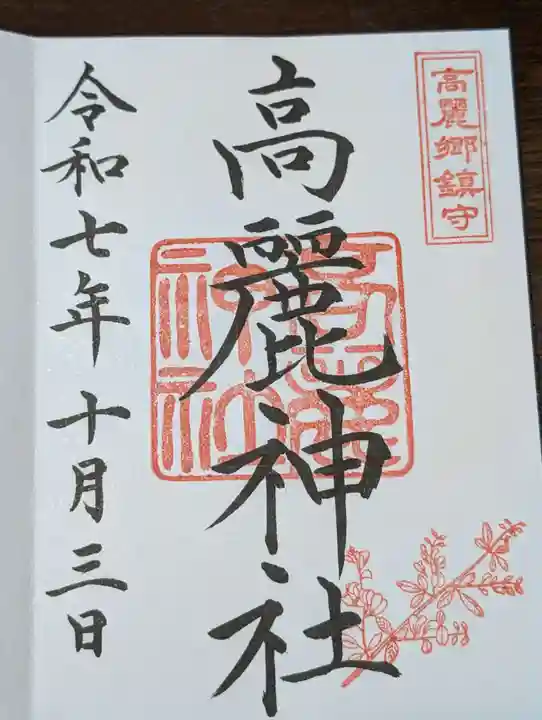 高麗郷鎮守
高麗神社
令和七年十月三日